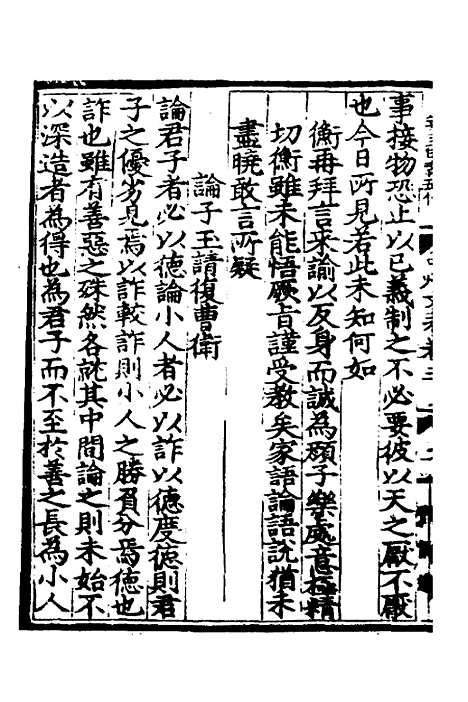 事接物恐止以已義制之不必要彼以天之厭不厭
也今日所見若此未知何如
衡再拜言来諭以反身而誠為顔子樂處意極精
切衡雖未能悟厥旨謹受教矣家語論語說猶未
盡曉敢言所疑
論子玉請復曹衛
論君子者必以德論小人者必以詐以德度德則君
子之優劣見焉以詐較詐則小人之勝負分焉德也
詐也雖有善惡之殊然各就其中間論之則未始不
以深造者為得也為君子而不至於善之長為小人